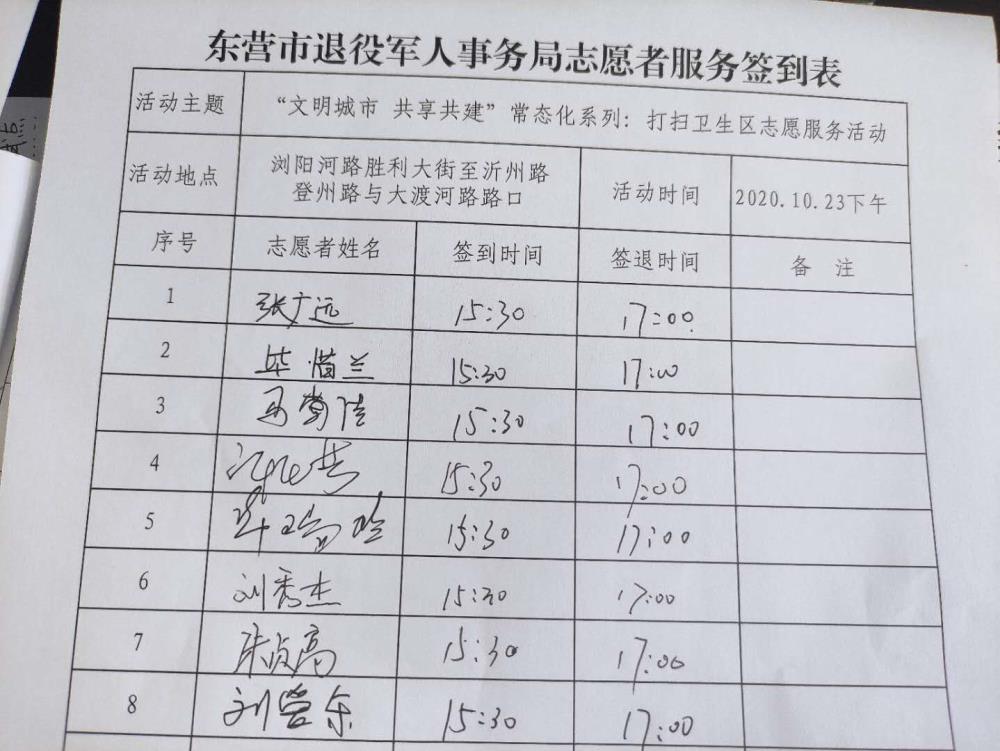 东营市退役军人事务局志愿者服务签到表
活动主题 “文明城市 共享共建”常态化系列：打扫卫生区志愿服务活动
活动地点 浏阳河路胜利大街至沂州路 登州路与大渡河路路口 活动时间 2020.10.23下午
序号 志愿者姓名 签到时间 签退时间 备 注
1 张广远 15:30 17:00
2 毕惜兰 15:30 17:00
3 15:30 17:00
4 15:30 17:00
5 15:30 17:00
6 刘秀杰 15:30 17:00
7 15:30 17:00
8 刘营东 15:30 17:00